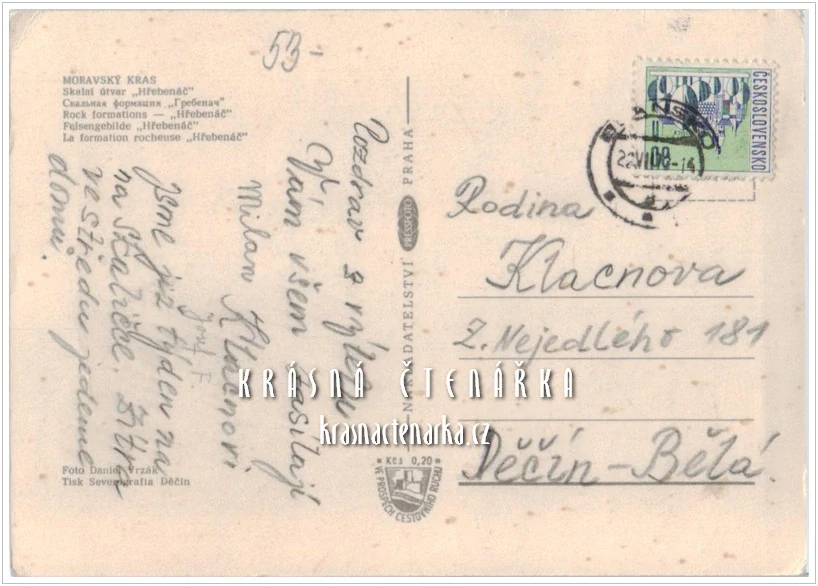 53-
MORAVSKÝ KRAS
Skalní útvar „Hřebenáč"
Скальная формация „Гребенач"
Rock formations — „Hřebenáč"
Felsengebilde „Hřebenáč"
La formation rocheuse „Hřebenáč"
Pozdrav z výletu
Vám všem zasílají
Milan Klacnovi
Jsme již týden na
na Skaličce.
ve středu jedeme
domů.
Foto Daniel Vrzák
Tisk Severografia Děčín
NAKLADATELSTVÍ PRESSFOTO PRAHA
Kčs 0,20
VE PROSPĚCH CESTOVNÍHO RUCHU
ČESKOSLOVENSKO
BLANSKO
Rodina
Klacnova
Z. Nejedlého 181
Děčín-Bělá.
KRÁSNÁ ČTENÁŘKA
krasnactenarka.cz